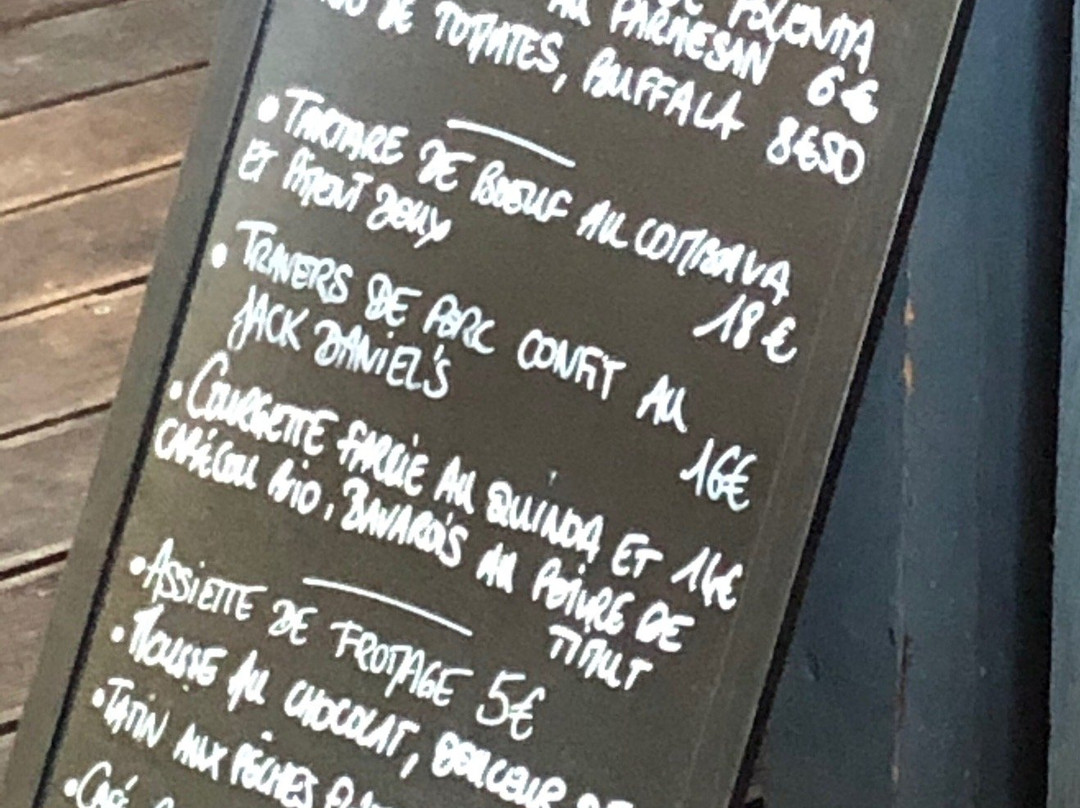 DE POLENTA
AU PARMESAN 6€
DE TOMATES, BUFFALA 8€50
• TARTARE DE BOEUF AU COMBAVA
ET PIMENT DOUX 18€
• TRAVERS DE PORC CONFIT AU
JACK DANIEL'S 16€
• COURGETTE FARCIE AU QUINOA ET 14€
CABÉCOU BIO, BAVAROIS AU POIVRE DE
TIMUT
• ASSIETTE DE FROMAGE 5€
• MOUSSE AU CHOCOLAT, DOUCEUR DE
• TATIN AUX PÊCHES
• CAFÉ